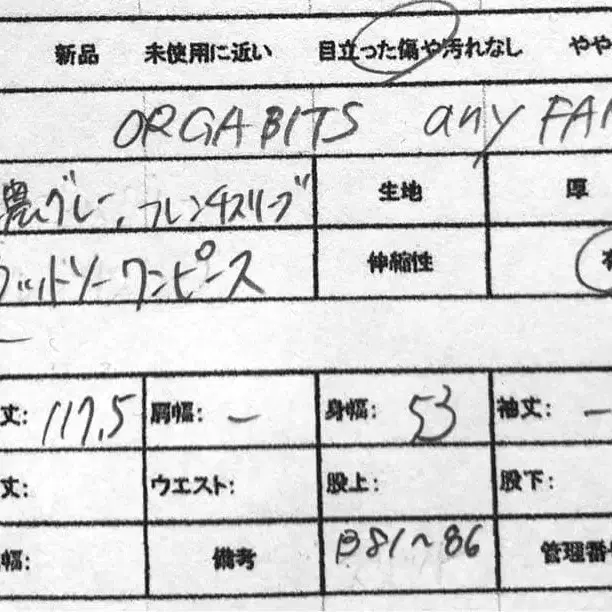 新品 未使用に近い 目立った傷や汚れなし やや
ORGABITS any FA
濃いグレー、フレンチスリーブ 生地 厚
カットソーワンピース 伸縮性 有
丈: 117.5 肩幅: ー 身幅: 53 袖丈: ー
丈: ウエスト: 股上: 股下:
幅: 備考 B81〜86 管理番号